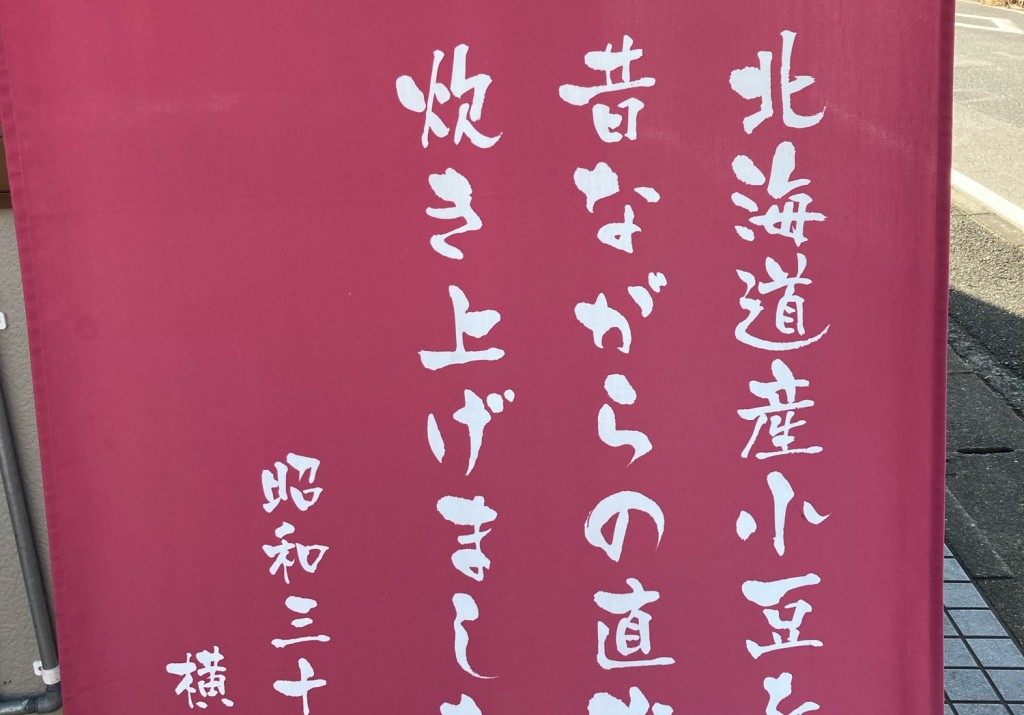 北海道産小豆を
昔ながらの直
炊き上げまし
昭和三十
横